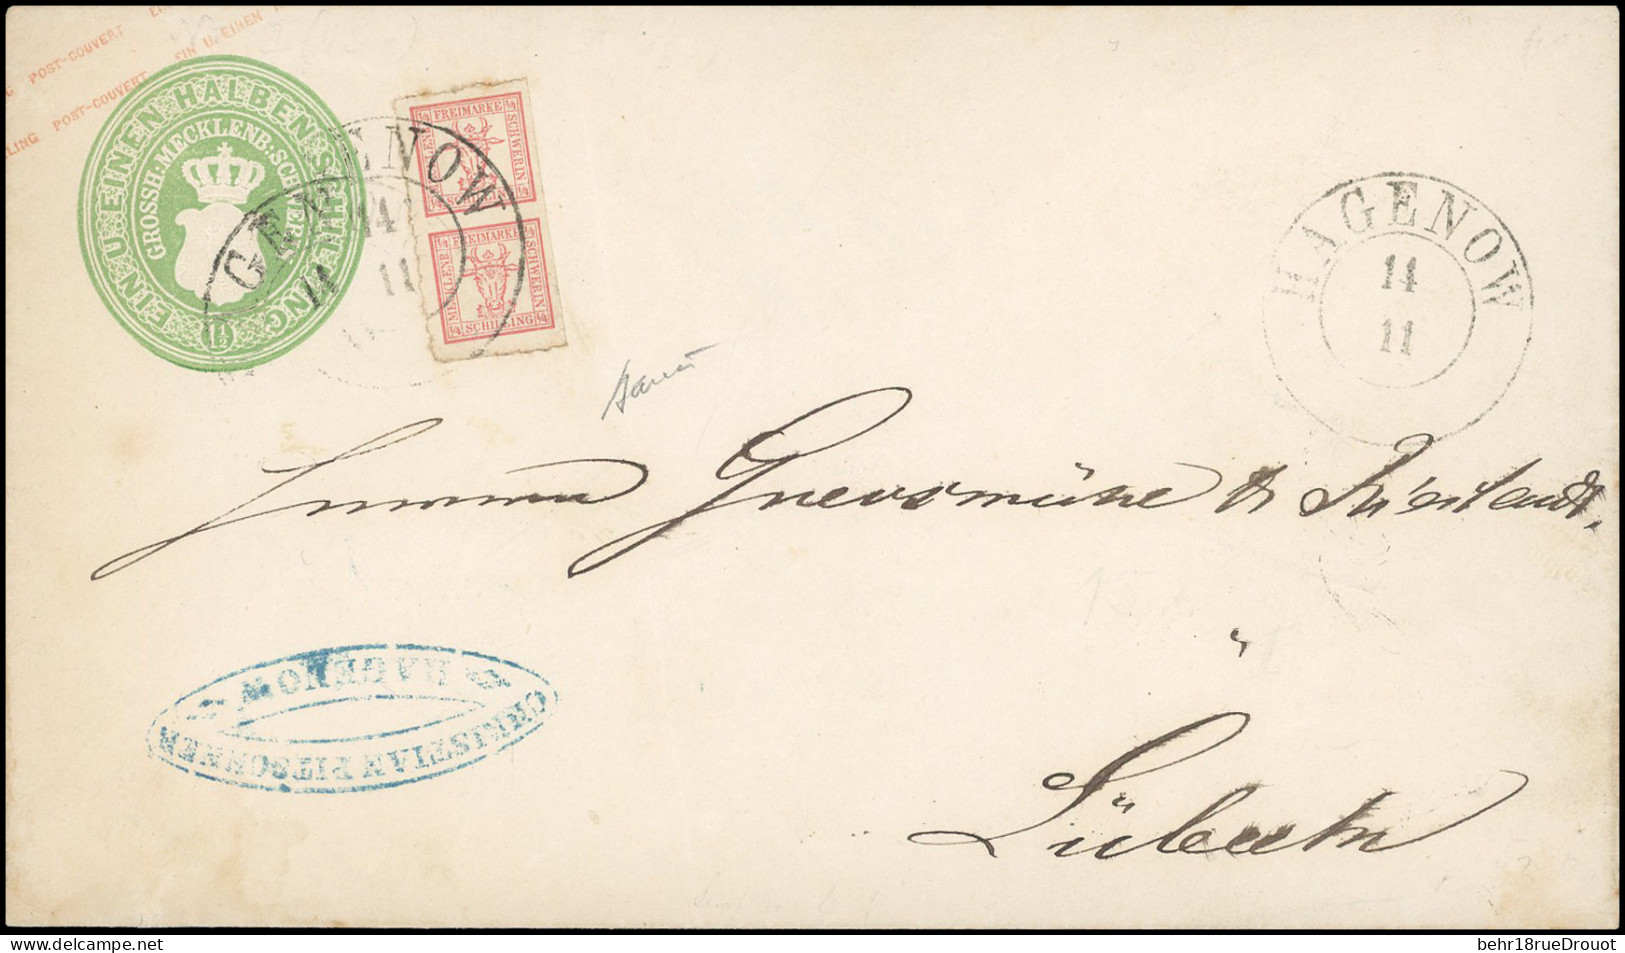 POST-COUVERT EIN
LING POST-COUVERT EIN U. EINEN
EIN U. EINEN HALBEN SCHILLING
GROSSH: MECKLENB: SCHWERIN
1½
FREIMARKE
SCHWERIN
SCHILLING
¼ FREIMARKE ¼
MECKLENB
SCHWERIN
¼ SCHILLING ¼
HAGENOW
14
11
HAGENOW
14
11
Herren Grevsmühl &
Lübeck
CHRISTIAN PITSCHNER
HAGENOW
delcampe.net
behr18rueDrouot